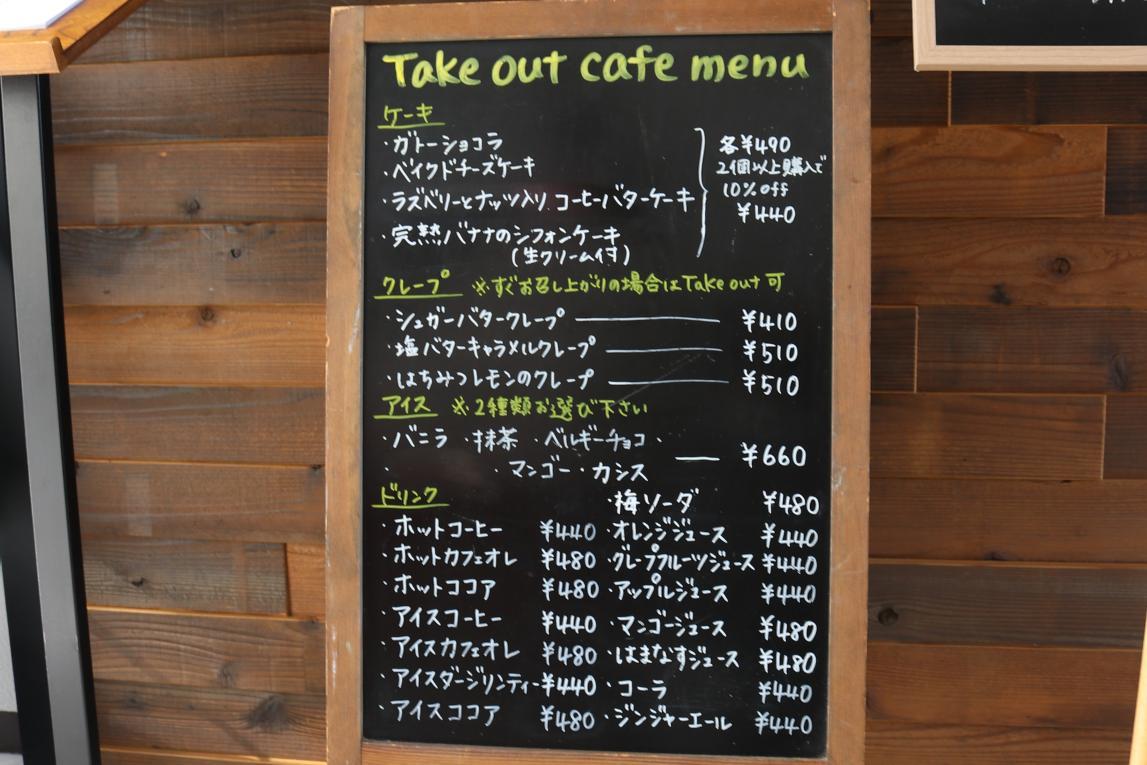 Take out cafe menu
ケーキ
・ガトーショコラ
・ベイクドチーズケーキ
・ラズベリーとナッツ入り コーヒーバターケーキ
・完熟バナナのシフォンケーキ
(生クリーム付)
各¥490
2個以上購入で
10%off
¥440
クレープ ※すぐお召し上がりの場合はTake out 可
・シュガーバタークレープ ¥410
・塩バターキャラメルクレープ ¥510
・はちみつレモンのクレープ ¥510
アイス ※2種類お選び下さい
・バニラ ・抹茶 ・ベルギーチョコ・
・マンゴー・カシス ¥660
ドリンク
・ホットコーヒー ¥440
・ホットカフェオレ ¥480
・ホットココア ¥480
・アイスコーヒー ¥440
・アイスカフェオレ ¥480
・アイスダージリンティー ¥440
・アイスココア ¥480
・梅ソーダ ¥480
・オレンジジュース ¥440
・グレープフルーツジュース ¥440
・アップルジュース ¥440
・マンゴージュース ¥480
・はまなすジュース ¥480
・コーラ ¥440
・ジンジャーエール ¥440